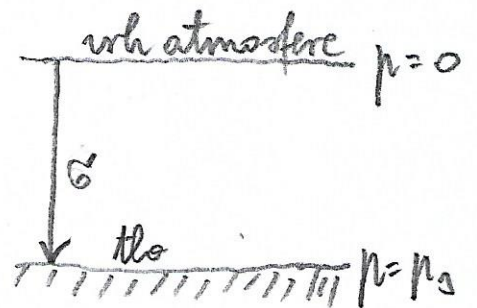 vrh atmosfere p=0
σ
tla p=p_s